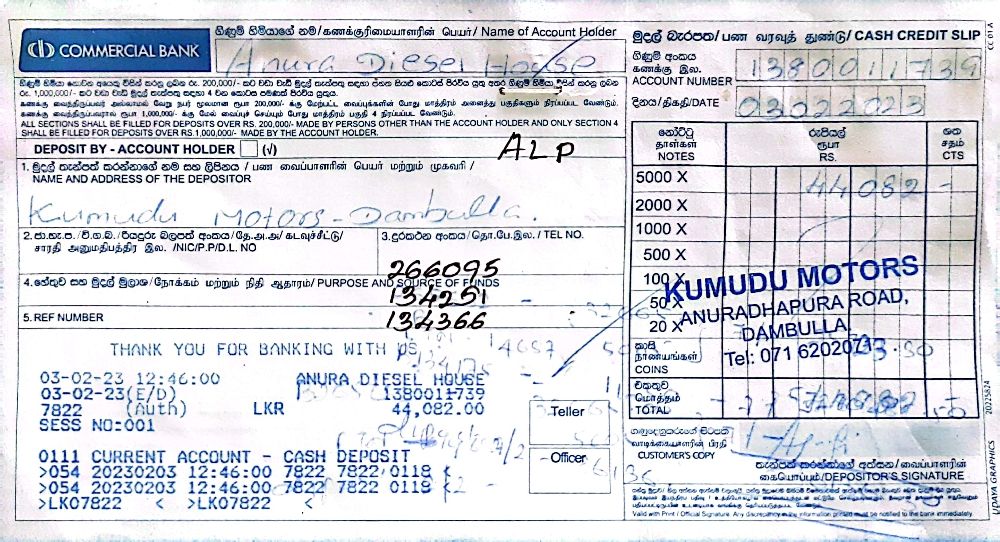 COMMERCIAL BANK
ගිණුම් හිමියාගේ නම/கணக்குரிமையாளரின் பெயர்/ Name of Account Holder
Anura Diesel House
ALL SECTIONS SHALL BE FILLED FOR DEPOSITS OVER RS. 200,000/- MADE BY PERSONS OTHER THAN THE ACCOUNT HOLDER AND ONLY SECTION 4
SHALL BE FILLED FOR DEPOSITS OVER RS.1,000,000/- MADE BY THE ACCOUNT HOLDER.
DEPOSIT BY - ACCOUNT HOLDER (√)
ALP
1. මුදල් තැන්පත් කරන්නාගේ නම සහ ලිපිනය / பண வைப்பாளரின் பெயர் மற்றும் முகவரி /
NAME AND ADDRESS OF THE DEPOSITOR
Kumudu Motors - Dambulla.
2. ජා.හැ.ප. / වි.ග.බ. / රියදුරු බලපත් අංකය/ தே.அ.அ/ கடவுச்சீட்டு/
சாரதி அனுமதிபத்திர இல. /NIC/P.P/D.L. NO
3. දුරකථන අංකය/ தொ.பே.இல. / TEL NO.
266095
4. හේතුව සහ මුදල් මූලාශ්‍ර/நோக்கம் மற்றும் நிதி ஆதாரம்/ PURPOSE AND SOURCE OF FUNDS
134251
5. REF NUMBER
134366
THANK YOU FOR BANKING WITH US
03-02-23 12:46:00 ANURA DIESEL HOUSE
03-02-23(E/D) 1380011739
7822 (Auth) LKR 44,082.00
SESS NO:001
0111 CURRENT ACCOUNT - CASH DEPOSIT
>054 20230203 12:46:00 7822 7822 0118 <
>054 20230203 12:46:00 7822 7822 0118 <
>LKO7822 < >LKO7822 <
Teller
Officer
මුදල් බැරපත/ பண வரவுத் துண்டு/ CASH CREDIT SLIP
CC 01A
ගිණුම් අංකය
கணக்கு இல.
ACCOUNT NUMBER 1380011739
දිනය/திகதி/DATE 03022023
නෝට්ටු රුපියල් ශත
தாள்கள் ரூபா சதம்
NOTES RS. CTS
5000 X 44082 -
2000 X
1000 X
500 X
100 X
50 X
20 X
KUMUDU MOTORS
ANURADHAPURA ROAD,
DAMBULLA.
කාසි
நாணயங்கள்
COINS
එකතුව
மொத்தம்
TOTAL
ගනුදෙනුකරුගේ පිටපත
வாடிக்கையாளரின் பிரதி
CUSTOMER'S COPY
තැන්පත් කරන්නාගේ අත්සන/வைப்பாளரின்
கையொப்பம்/DEPOSITOR'S SIGNATURE
Valid with Print / Official Signature. Any discrepancy in the information printed must be notified to the bank immediately.
UDAYA GRAPHICS 20225824